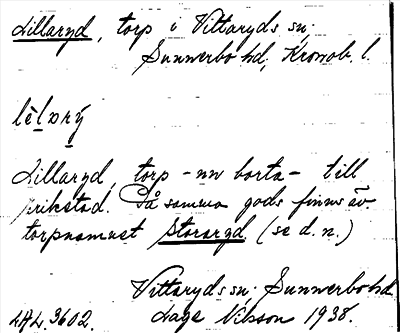 Lillaryd, torp i Vittaryds sn;
Sunnerbo hd, Kronob. l.
lèl̠ɒrý̠
Lillaryd, torp - nu borta - till
Eriksta​d. På samma gods finns äv
torpnamnet Storaryd (se d. n.)
Vittaryds sn; Sunnerbo hd
LAL. 3602. Lage Nilsson 1938.